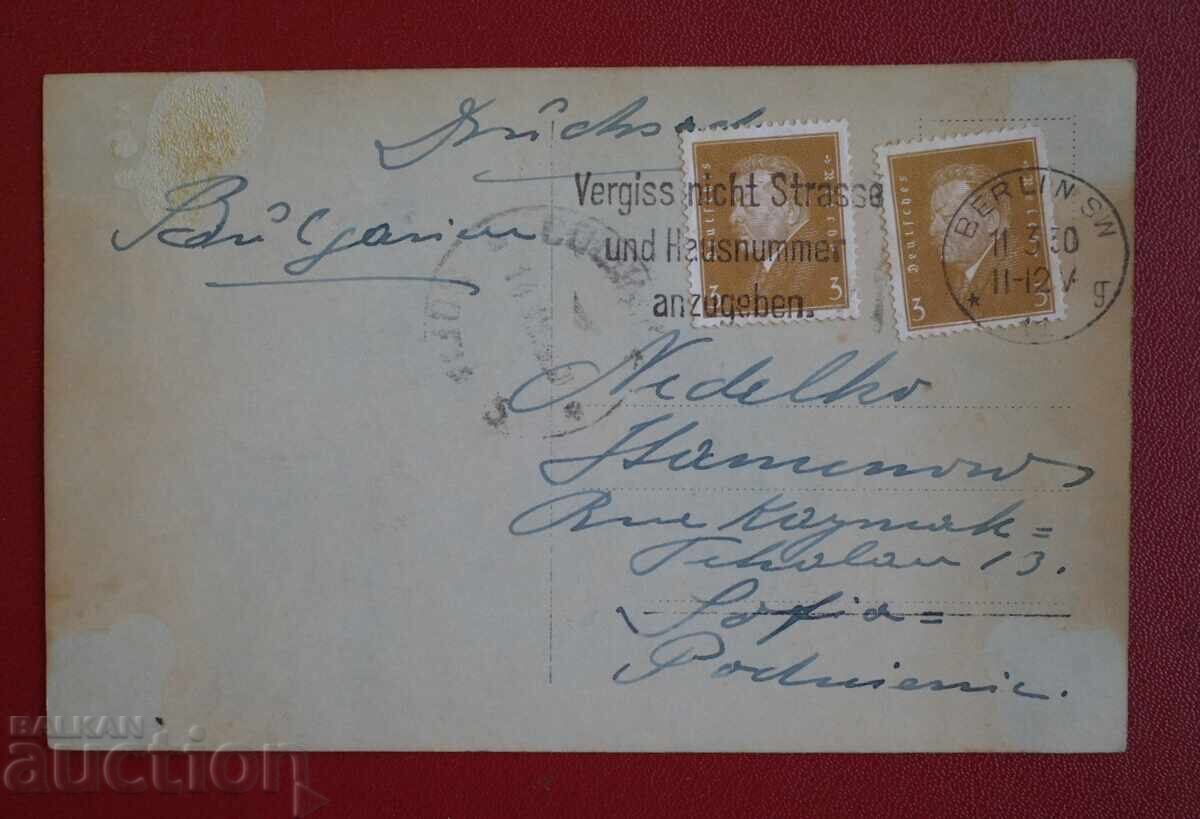 Drucksa
Bulgarien
Vergiss nicht Strasse
und Hausnummer
anzugeben.
Deutsches Reich
3 3
Deutsches Reich
3 3
BERLIN SW
11.3.30
11-12 V
* g
11
Nedelko
Rue Kaymak=
Tchalan 13.
Sofia=
Poduienie.
BALKAN
auction